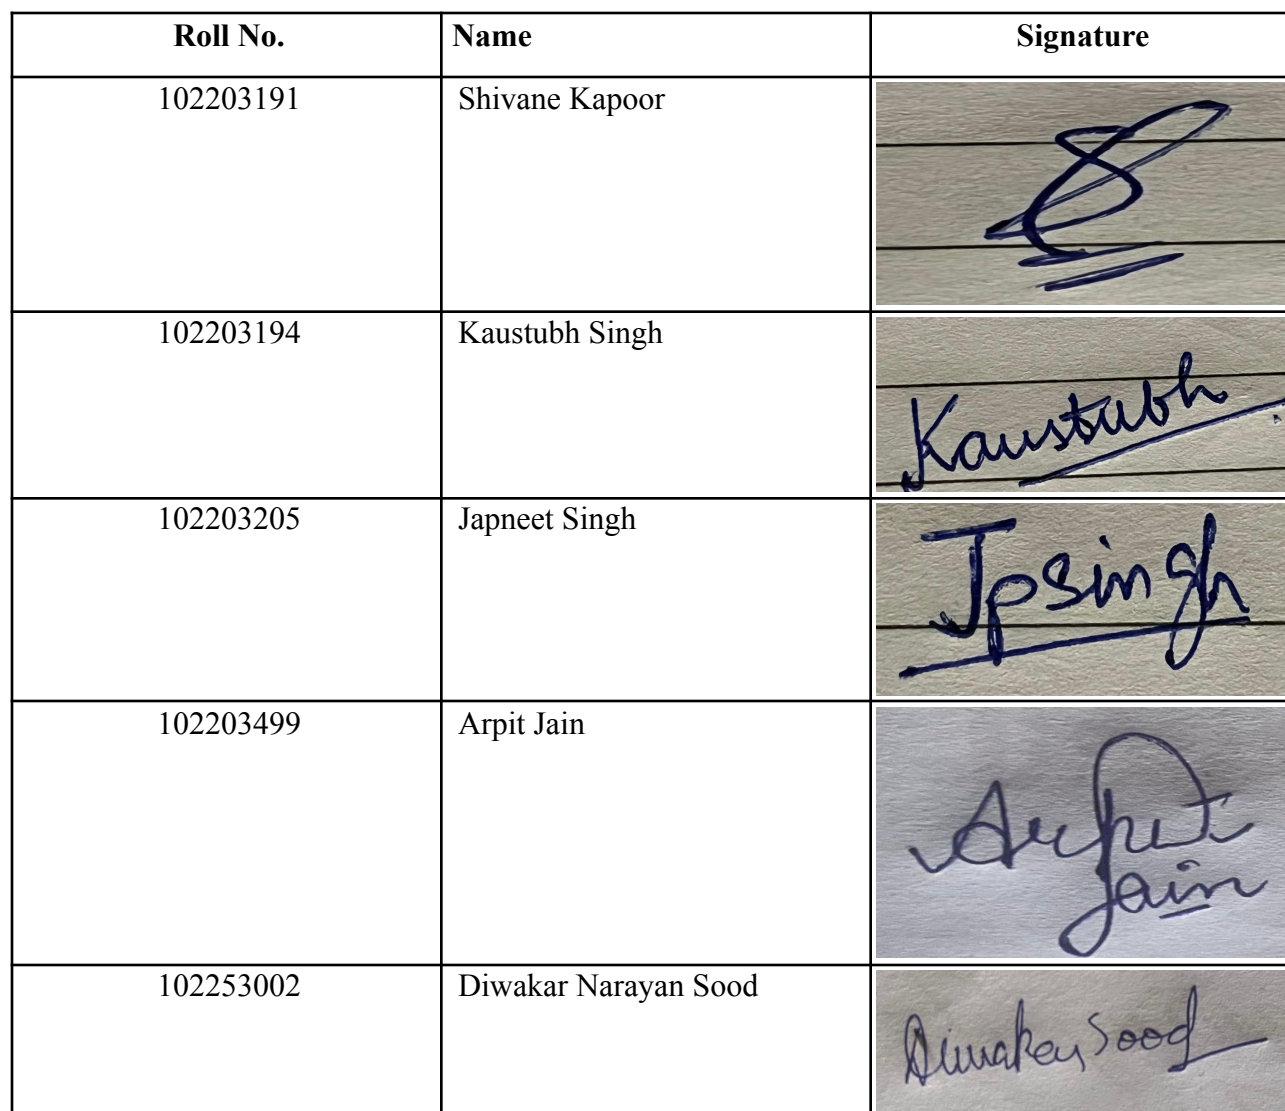 Roll No. Name Signature
102203191 Shivane Kapoor
102203194 Kaustubh Singh Kaustubh
102203205 Japneet Singh Jpsingh
102203499 Arpit Jain Arpit
Jain
102253002 Diwakar Narayan Sood Diwakar Sood